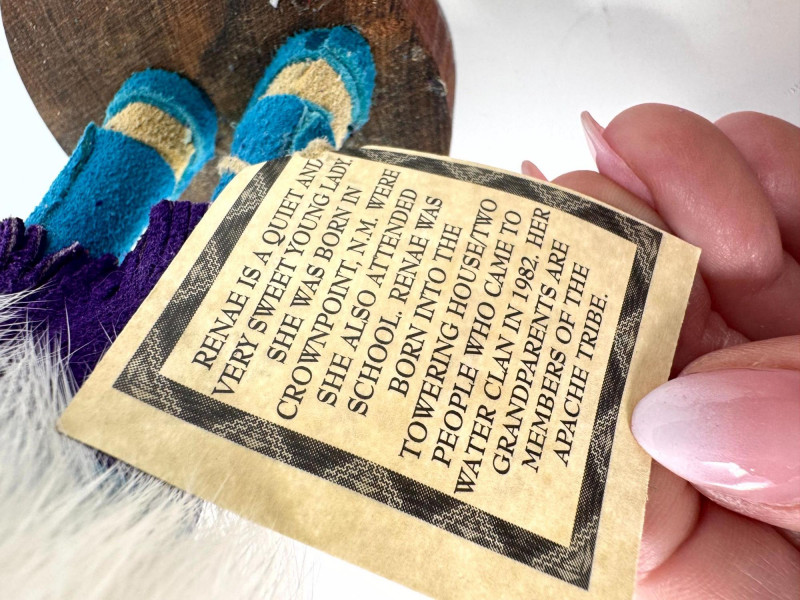 RENAE IS A QUIET AND
VERY SWEET YOUNG LADY.
SHE WAS BORN IN
CROWNPOINT, N.M. WERE
SHE ALSO ATTENDED
SCHOOL. RENAE WAS
BORN INTO THE
TOWERING HOUSE/TWO
PEOPLE WHO CAME TO
WATER CLAN IN 1982. HER
GRANDPARENTS ARE
MEMBERS OF THE
APACHE TRIBE.